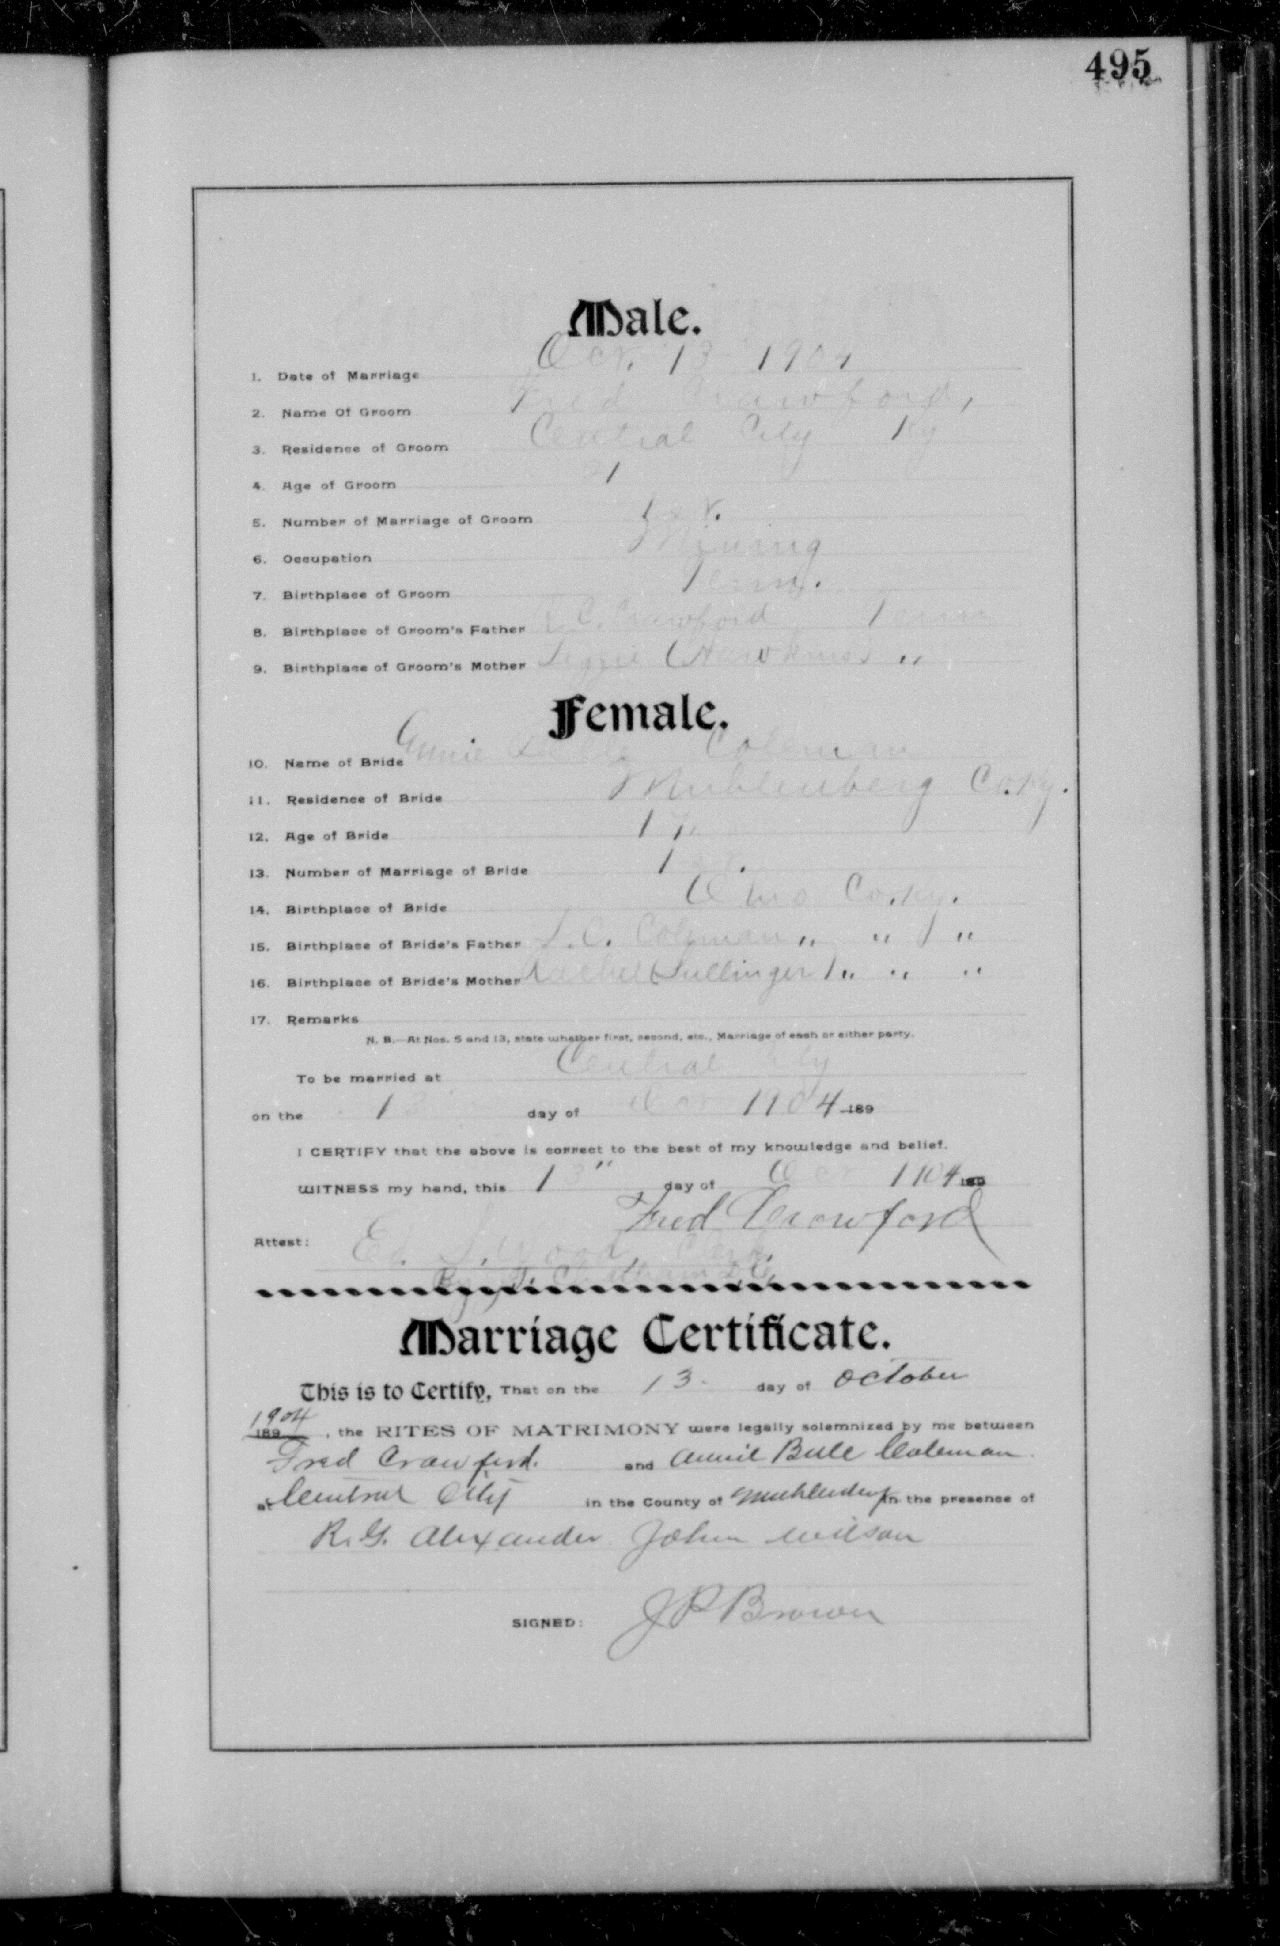 495
Male.
1. Date of Marriage Oct. 13 1904
2. Name Of Groom Fred Crawford,
3. Residence of Groom Central City Ky
4. Age of Groom 21
5. Number of Marriage of Groom 1st.
6. Occupation Mining
7. Birthplace of Groom Tenn.
8. Birthplace of Groom's Father C. Crawford Tenn
9. Birthplace of Groom's Mother (Hawkins) "
Female.
10. Name of Bride Annie Belle Coleman
11. Residence of Bride Muhlenberg Co. Ky.
12. Age of Bride 17
13. Number of Marriage of Bride 1st.
14. Birthplace of Bride Ohio Co. Ky.
15. Birthplace of Bride's Father Coleman " " "
16. Birthplace of Bride's Mother Rachel ( " " "
17. Remarks
N. B.—At Nos. 5 and 13, state whether first, second, etc., Marriage of each or either party.
To be married at Central City
on the 13 day of Oct 1904 189
I CERTIFY that the above is correct to the best of my knowledge and belief.
WITNESS my hand, this 13" day of Oct 1904 189
Fred Crawford
Attest: Ed. S. Wood, Clerk
By D.C.
Marriage Certificate.
This is to Certify, That on the 13. day of October
1904
189 , the RITES OF MATRIMONY were legally solemnized by me between
Fred Crawford. and Annie Bell Coleman
at Central City in the County of Muhlenberg in the presence of
R. G. Alexander John Wilson
SIGNED: J P Brown